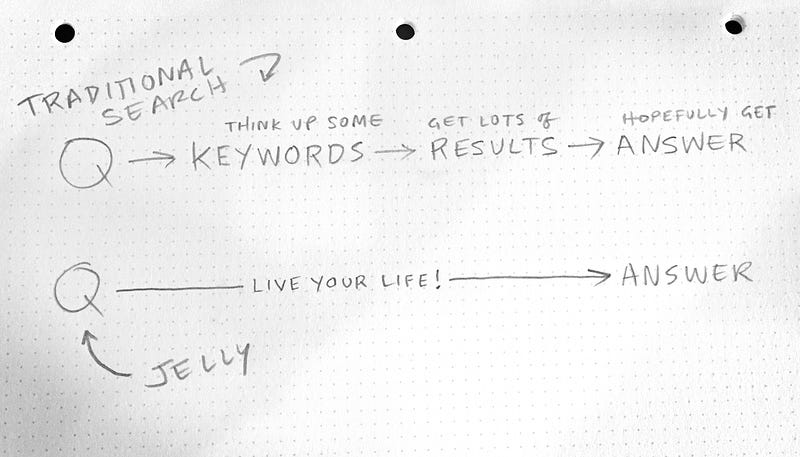 TRADITIONAL
SEARCH
THINK UP SOME GET LOTS of HOPEFULLY GET
Q → KEYWORDS → RESULTS → ANSWER
Q LIVE YOUR LIFE! → ANSWER
JELLY